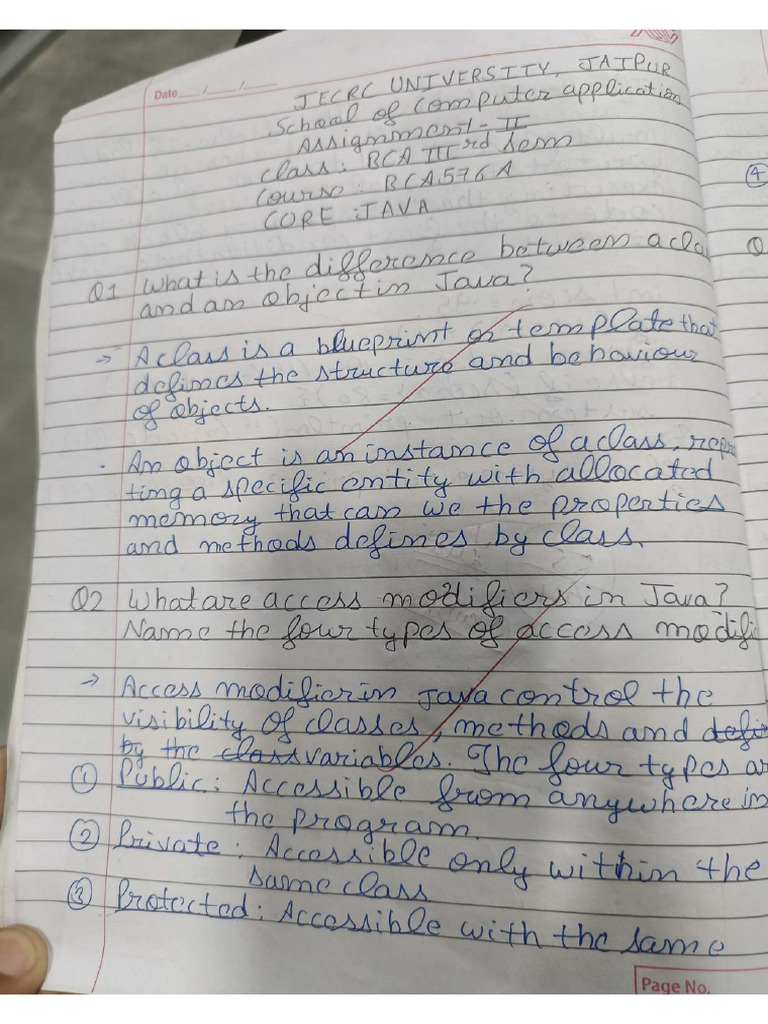 Date __/__/__
JECRC UNIVERSITY, JAIPUR
School of computer application
Assignment - II
class : BCA IIIrd sem
course : BCA576A
CORE : JAVA
Q1 What is the difference between a cla
and an object in Java?
→ A class is a blueprint or template that
defines the structure and behaviour
of objects.
. An object is an instance of a class, repr
ting a specific entity with allocated
memory that can we the properties
and methods defines by class.
Q2 What are access modifiers in Java?
Name the four types of access modifi
→ Access modifier in Java control the
visibility of classes, methods and defin
by the class variables. The four types ar
① Public : Accessible from anywhere in
the program.
② Private : Accessible only within the
same class
③ Protected : Accessible with the same
Page No.
④
Q